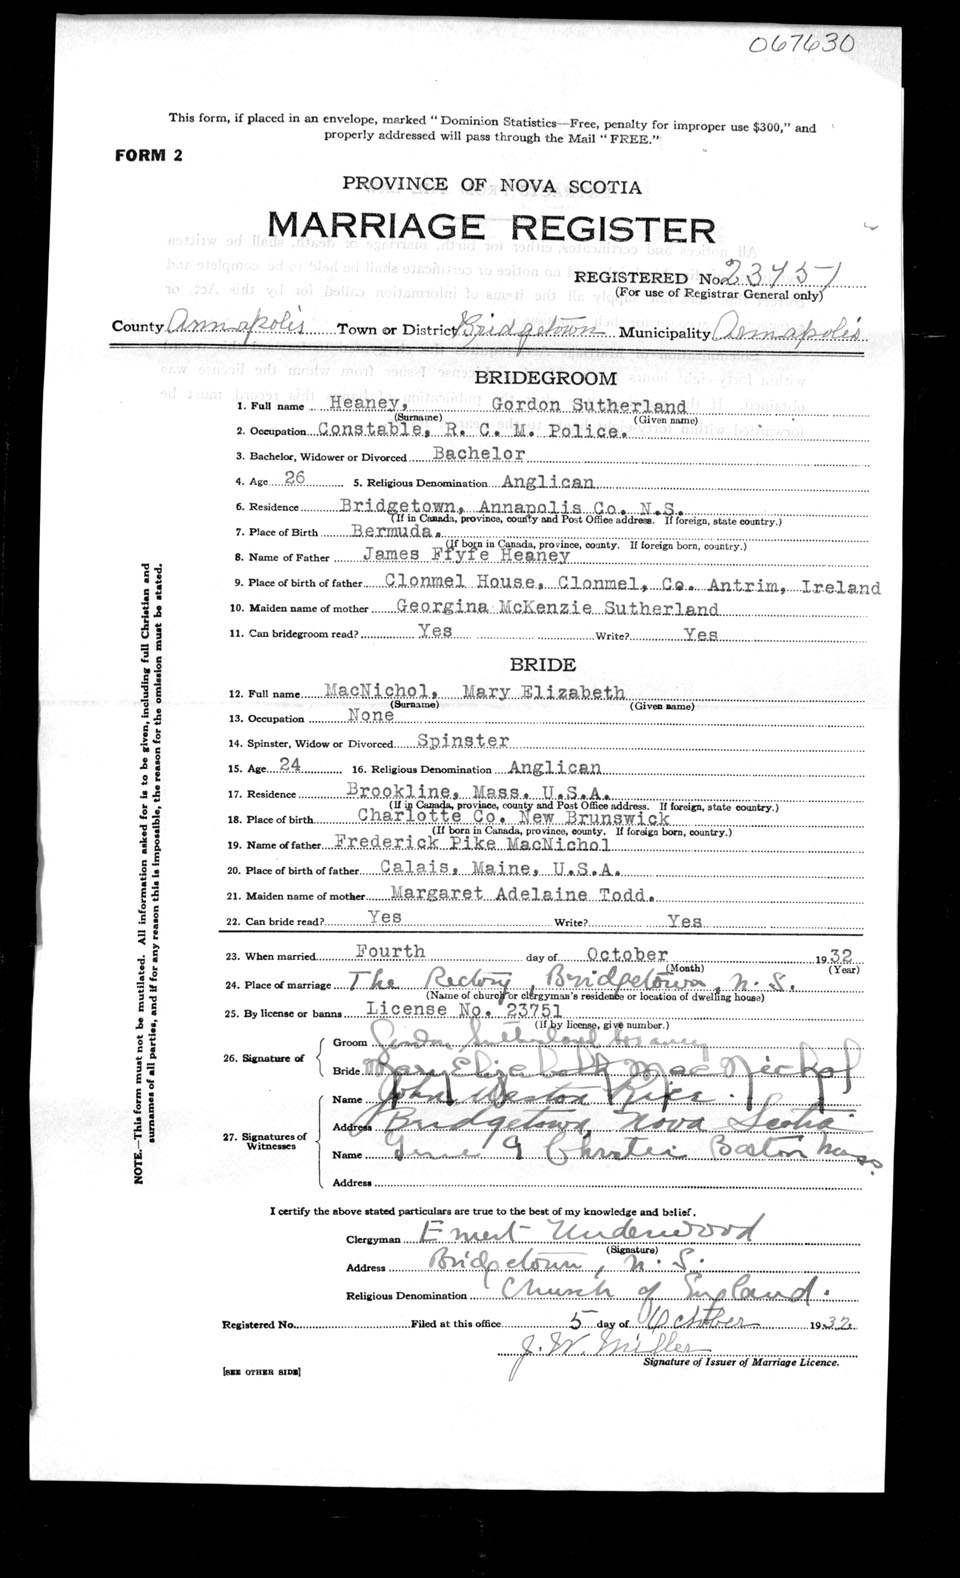 067630
This form, if placed in an envelope, marked "Dominion Statistics—Free, penalty for improper use $300," and
properly addressed will pass through the Mail "FREE."
FORM 2
PROVINCE OF NOVA SCOTIA
MARRIAGE REGISTER
REGISTERED No. 23751
(For use of Registrar General only)
County Annapolis Town or District Bridgetown Municipality Annapolis
BRIDEGROOM
1. Full name Heaney, Gordon Sutherland
(Surname) (Given name)
2. Occupation Constable, R. C. M. Police.
3. Bachelor, Widower or Divorced Bachelor
4. Age 26 5. Religious Denomination Anglican
6. Residence Bridgetown, Annapolis Co. N.S.
(If in Canada, province, county and Post Office address. If foreign, state country.)
7. Place of Birth Bermuda.
(If born in Canada, province, county. If foreign born, country.)
8. Name of Father James Ffyfe Heaney
9. Place of birth of father Clonmel House, Clonmel, Co. Antrim, Ireland
10. Maiden name of mother Georgina McKenzie Sutherland
11. Can bridegroom read? Yes Write? Yes
BRIDE
12. Full name MacNichol, Mary Elizabeth
(Surname) (Given name)
13. Occupation None
14. Spinster, Widow or Divorced Spinster
15. Age 24 16. Religious Denomination Anglican
17. Residence Brookline, Mass. U.S.A.
(If in Canada, province, county and Post Office address. If foreign, state country.)
18. Place of birth Charlotte Co. New Brunswick
(If born in Canada, province, county. If foreign born, country.)
19. Name of father Frederick Pike MacNichol
20. Place of birth of father Calais, Maine, U.S.A.
21. Maiden name of mother Margaret Adelaine Todd.
22. Can bride read? Yes Write? Yes
23. When married Fourth day of October 1932
(Month) (Year)
24. Place of marriage The Rectory, Bridgetown, N.S.
(Name of church or clergyman's residence or location of dwelling house)
25. By license or banns License No. 23751
(If by license, give number.)
26. Signature of
Groom Gordon Sutherland Heaney
Bride Mary Elizabeth MacNichol
27. Signatures of Witnesses
Name John Weston
Address Bridgetown, Nova Scotia
Name Christie Boston Mass.
Address
I certify the above stated particulars are true to the best of my knowledge and belief.
Clergyman Ernest Underwood
(Signature)
Address Bridgetown, N.S.
Religious Denomination Church of England.
Registered No. Filed at this office 5 day of October 1932
J. W. Miller
Signature of Issuer of Marriage Licence.
[SEE OTHER SIDE]
NOTE.—This form must not be mutilated. All information asked for is to be given, including full Christian and
surnames of all parties, and if for any reason this is impossible, the reason for the omission must be stated.